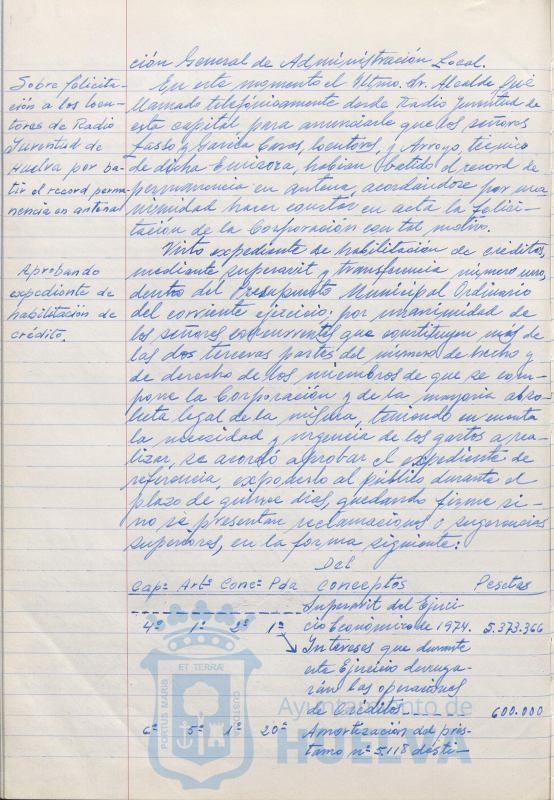 ción General de Administración Local.
Sobre felicita-
ción a los locu-
tores de Radio
Juventud de
Huelva por ba-
tir el record perma-
nencia en antena
En este momento el Iltmo. Sr. Alcalde fué
llamado telefónicamente desde Radio Juventud de
esta capital para anunciarle que los señores
y García Casas, locutores, y Arroyo, técnico
de dicha Emisora, habian batido el record de
permanencia en antena, acordándose por una-
nimidad hacer constar en acta la felici-
tación de la Corporación con tal motivo.
Aprobando
expediente de
habilitación de
crédito.
Visto expediente de habilitación de créditos,
mediante superavit y transferencia número uno,
dentro del Presupuesto Municipal Ordinario
del corriente ejercicio; por unanimidad de
los señores concurrentes que constituyen más de
las dos terceras partes del número de hecho y
de derecho de los miembros de que se com-
pone la Corporación y de la mayoria abso-
luta legal de la misma, teniendo en cuenta
la necesidad y urgencia de los gastos a rea-
lizar, se acordó aprobar el expediente de
referencia, exponerlo al público durante el
plazo de quince dias, quedando firme si
no se presentan reclamaciones o sugerencias
superiores, en la forma siguiente:
Cap: Artº Conc: Pda Conceptos Pesetas
Superavit del Ejerci-
4º 1º 2º 1º cio Económico de 1974. 5.373.366
Intereses que durante
este Ejercicio devenga-
rán las operaciones
de Créditos 600.000
6º 5º 1º 20º Amortización del prés-
tamo nº 5.118 desti-
ET TERRÆ
PORTUS MARIS
CUSTOD
Ayuntamiento de
HUELVA